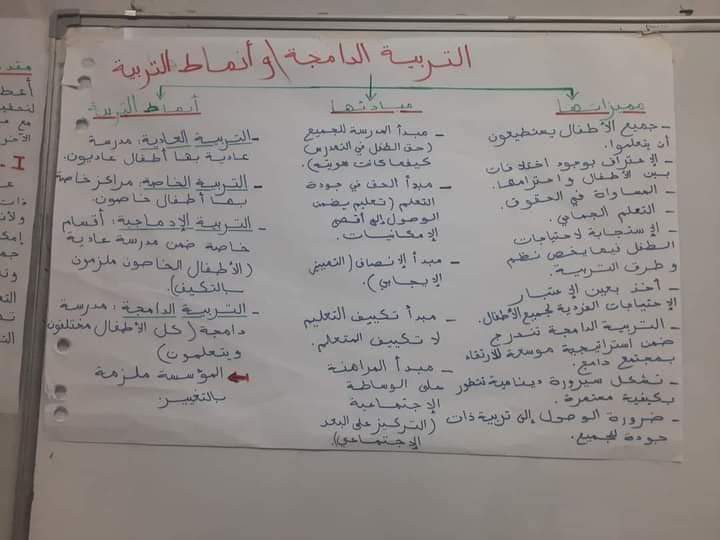 التربية الدامجة / وأنماط التربية
مميزاتها
- جميع الأطفال يستطيعون
أن يتعلموا.
- الاعتراف بوجود اختلافات
بين الأطفال واحترامها.
- المساواة في الحقوق.
- التعلم الجماعي.
- الإستجابة لاحتياجات
الطفل فيما يخص نظم
و طرق التربية.
- أخذ بعين الإعتبار
الإحتياجات الفردية لجميع الأطفال.
- التربية الدامجة تندرج
ضمن استراتيجية موسعة للارتقاء
بمجتمع دامج.
- تشكل سيرورة دينامية تتطور
بكيفية مستمرة.
- ضرورة الوصول إلى تربية ذات
جودة للجميع.
مبادئها
- مبدأ المدرسة للجميع
(حق الطفل في التمدرس
كيفما كانت هويته).
- مبدأ الحق في جودة
التعلم (تعليم يضمن
الوصول إلى أقصى
الإمكانيات.
- مبدأ الإنصاف (التمييز
الإيجابي).
- مبدأ تكييف التعليم
لا تكييف المتعلم.
- مبدأ المراهنة
على الوساطة
الإجتماعية
(التركيز على البعد
الإجتماعي).
أنماط التربية
- التربية العادية: مدرسة
عادية بها أطفال عاديون.
- التربية الخاصة: مراكز خاصة
بها أطفال خاصون.
- التربية الإدماجية: أقسام
خاصة ضمن مدرسة عادية
(الأطفال الخاصون ملزمون
بالتكيف).
- التربية الدامجة: مدرسة
دامجة (كل الأطفال مختلفون
ويتعلمون)
المؤسسة ملزمة
بالتغيير.
مقد
أعط
I.